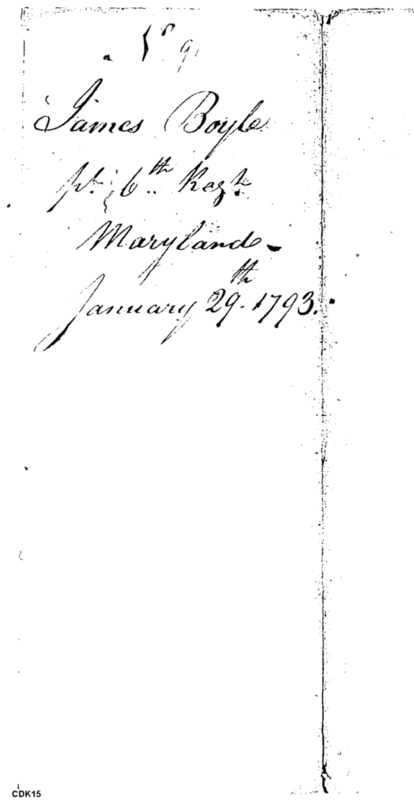 James Boyle
pt. 6th Regt.
Maryland
January 29th 1793.
CDK15